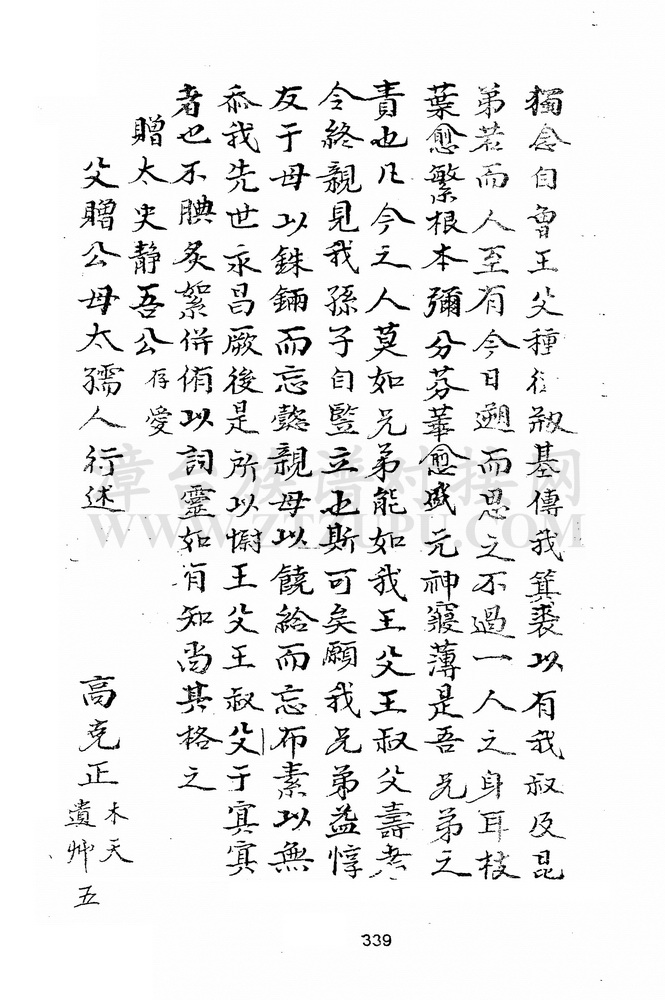 獨念自曾王父種德樹基傳我箕裘以有我叔及昆
弟若而人至有今日遡而思之不過一人之身耳枝
葉愈繁根本彌分芬華愈盛元神寖薄是吾兄弟之
責也凡今之人莫如兄弟能如我王父王叔父壽考
令終親見我孫子自豎立也斯可矣願我兄弟益惇
友于毋以銖錙而忘懿親毋以饒給而忘布素以無
忝我先世永昌厥後是所以慰王父王叔父于寘寘
者也不腆炙絮併侑以詞靈如有知尚其格之
贈太史靜吾公存愛
父贈公母太孺人行述 高克正木天遺艸 五
章台族谱对接网
WWW.ZTZUPU.COM
339